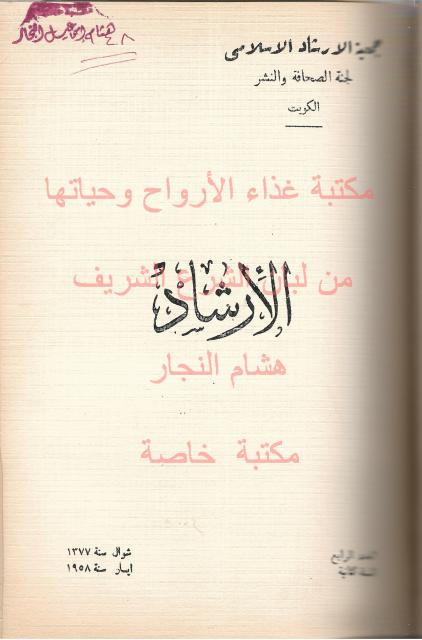 هشام إسماعيل النجار
جمعية الارشاد الاسلامى
لجنة الصحافة والنشر
الكويت
مكتبة غذاء الأرواح وحياتها
من لبان الشرع الشريف
الأرشاد
هشام النجار
مكتبة خاصة
شوال سنة ١٣٧٧
ايار سنة ١٩٥٨
العدد الرابع
السنة الثانية